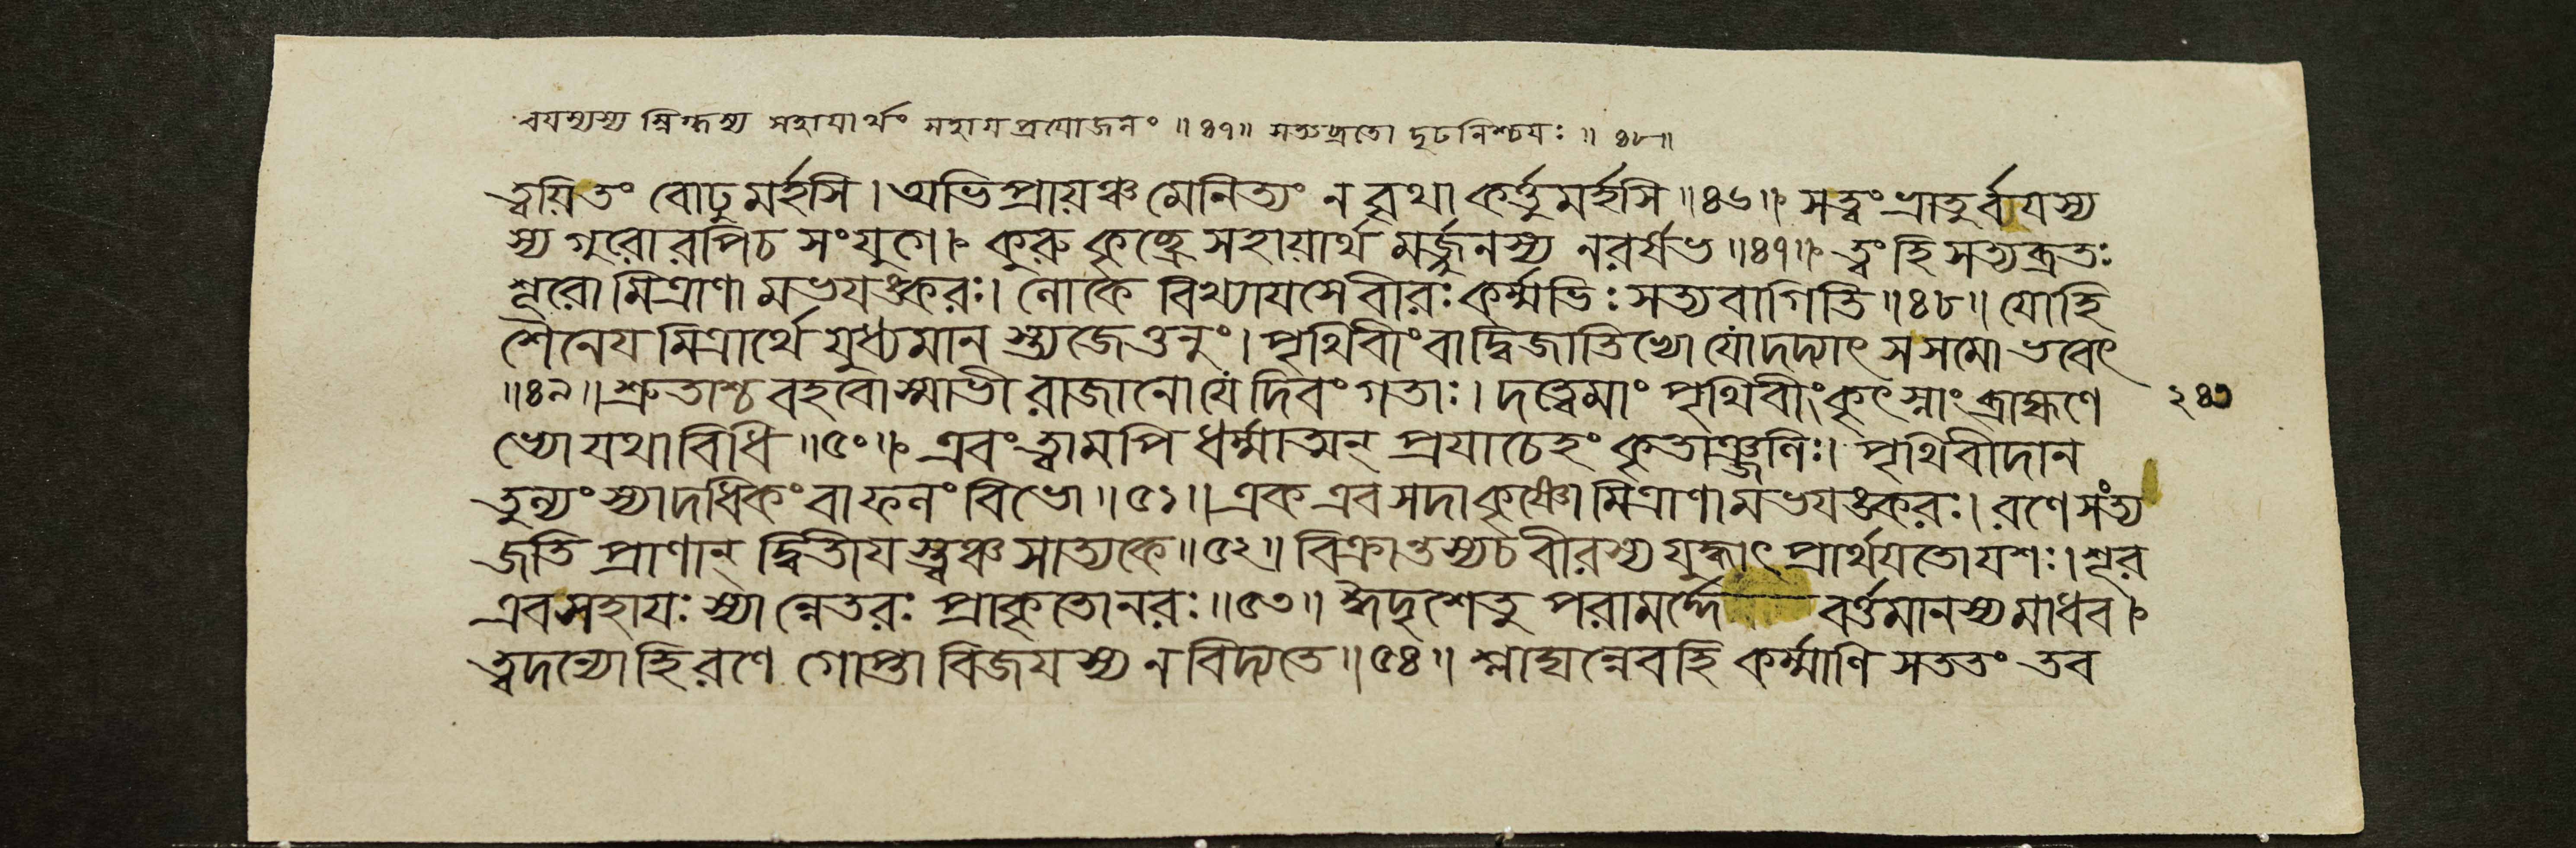 বযস্যস্য স্নিগ্ধস্য সহাযার্থং সহায প্রযোজনং ॥৪৭॥ সত্যব্রতো দৃঢনিশ্চযঃ ॥৪৮॥
ত্বয়িতং বোঢুমর্হসি। অভিপ্রায়ঞ্চ মেনিত্যং ন বৃথা কর্ত্তুমর্হসি ॥৪৬॥ সত্বং ভ্রাতুর্ব্বযস্য
স্য গুরোরপিচ সংযুগে। কুরু কৃচ্ছ্রে সহায়ার্থ মর্জ্জুনস্য নরর্ষভ ॥৪৭॥ ত্বং হি সত্যব্রতঃ
শূরো মিত্রাণা মভযঙ্করঃ। লোকে বিখ্যাযসে বীরঃ কর্ম্মভিঃ সত্যবাগিতি ॥৪৮॥ যোহি
শৈনেয মিত্রার্থে যুধ্যমান স্ত্যজেত্তনুং। পৃথিবীংবা দ্বিজাতিভ্যো যোদদ্যাৎ সসমো ভবেৎ
॥৪৯॥ শ্রুতাশ্চ বহবোস্মাভী রাজানো যে দিবং গতাঃ। দত্ত্বেমাং পৃথিবীং কৃৎস্নাং ব্রাহ্মণে
ভ্যো যথাবিধি ॥৫০॥ এবং ত্বামপি ধর্ম্মাত্মন্ প্রযাচেহং কৃতাঞ্জলিঃ। পৃথিবীদান
তুল্যং স্যাদধিকং বা ফলং বিভো ॥৫১॥ এক এব সদা কৃষ্ণো মিত্রাণামভযঙ্করঃ। রণে সংত্য
জতি প্রাণান্ দ্বিতীয স্ত্বঞ্চ সাত্যকে ॥৫২॥ বিক্রান্তস্যচ বীরস্য যুদ্ধাৎ প্রার্থযতো যশঃ। শূর
এব সহাযঃ স্যা ন্নেতরঃ প্রাকৃতো নরঃ ॥৫৩॥ ঈদৃশেতু পরামর্দ্দে বর্ত্তমানস্য মাধব।
ত্বদন্যো হি রণে গোপ্তা বিজযস্য ন বিদ্যতে ॥৫৪॥ শ্লাঘন্নেবহি কর্ম্মাণি সততং তব
২৪৩